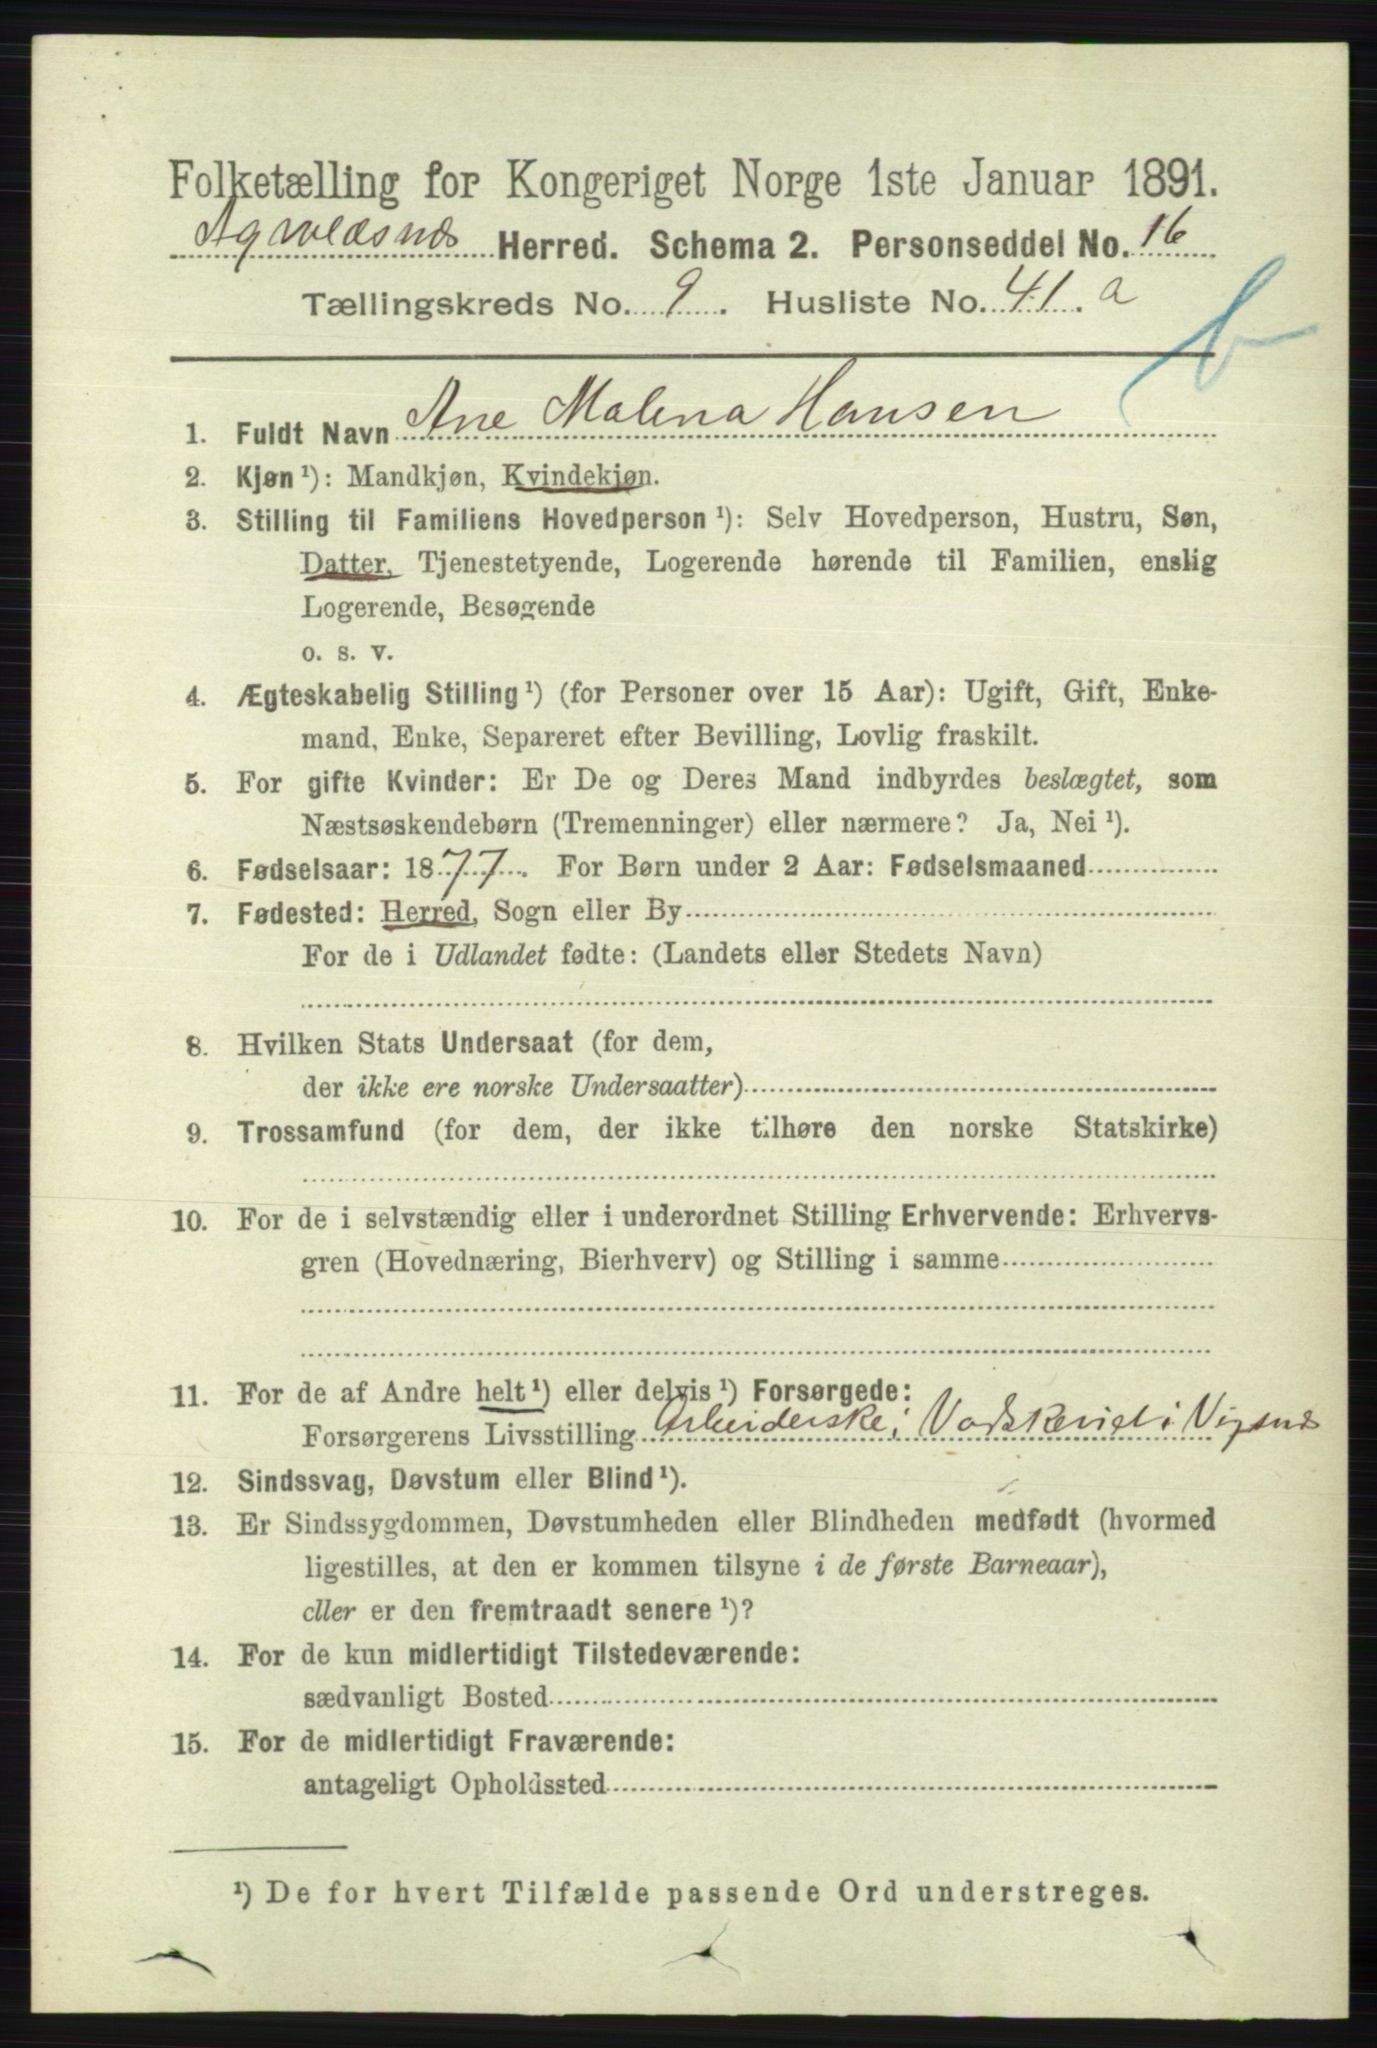 Folketælling for Kongeriget Norge 1ste Januar 1891.
Agvaldsnæs Herred. Schema 2. Personseddel No. 16
Tællingskreds No. 9. Husliste No. 41. a
b
1. Fuldt Navn Ane Malena Hansen
2. Kjøn ¹): Mandkjøn, Kvindekjøn.
3. Stilling til Familiens Hovedperson ¹): Selv Hovedperson, Hustru, Søn,
Datter, Tjenestetyende, Logerende hørende til Familien, enslig
Logerende, Besøgende
o. s. v.
4. Ægteskabelig Stilling ¹) (for Personer over 15 Aar): Ugift, Gift, Enke-
mand, Enke, Separeret efter Bevilling, Lovlig fraskilt.
5. For gifte Kvinder: Er De og Deres Mand indbyrdes beslægtet, som
Næstsøskendebørn (Tremenninger) eller nærmere? Ja, Nei ¹).
6. Fødselsaar: 1877. For Børn under 2 Aar: Fødselsmaaned
7. Fødested: Herred, Sogn eller By
For de i Udlandet fødte: (Landets eller Stedets Navn)
8. Hvilken Stats Undersaat (for dem,
der ikke ere norske Undersaatter)
9. Trossamfund (for dem, der ikke tilhøre den norske Statskirke)
10. For de i selvstændig eller i underordnet Stilling Erhvervende: Erhvervs-
gren (Hovednæring, Bierhverv) og Stilling i samme
11. For de af Andre helt ¹) eller delvis ¹) Forsørgede:
Forsørgerens Livsstilling Arbeiderske i i Vigsnæs
12. Sindssvag, Døvstum eller Blind ¹).
13. Er Sindssygdommen, Døvstumheden eller Blindheden medfødt (hvormed
ligestilles, at den er kommen tilsyne i de første Barneaar),
eller er den fremtraadt senere ¹)?
14. For de kun midlertidigt Tilstedeværende:
sædvanligt Bosted
15. For de midlertidigt Fraværende:
antageligt Opholdssted
¹) De for hvert Tilfælde passende Ord understreges.